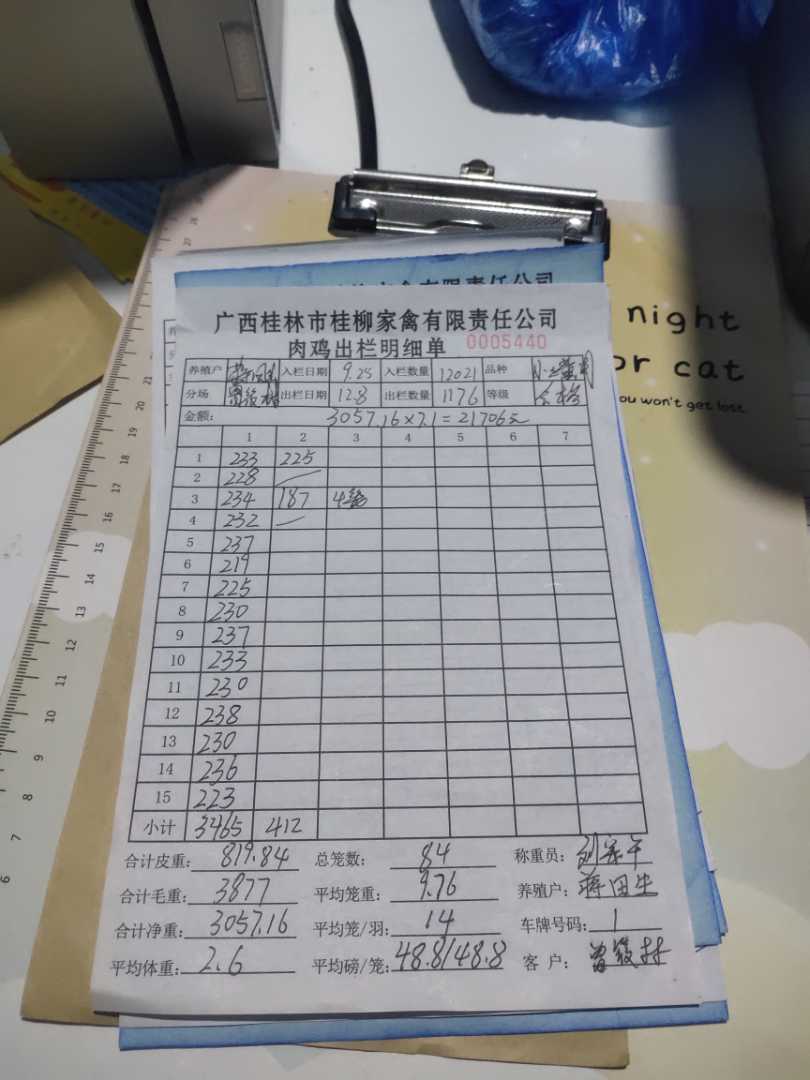 肉禽有限责任公司
广西桂林市桂柳家禽有限责任公司
肉鸡出栏明细单 0005440
养殖户 蒋田生 入栏日期 9.25 入栏数量 12021 品种
分场 曾筱林 出栏日期 12.8 出栏数量 1176 等级 合格
金额: 3057.16×7.1=21706元
1 2 3 4 5 6 7
1 233 225
2 228
3 234 187 4笼
4 232
5 237
6 219
7 225
8 230
9 237
10 233
11 230
12 238
13 230
14 236
15 223
小计 3465 412
合计皮重: 819.84 总笼数: 84 称重员:
合计毛重: 3877 平均笼重: 9.76 养殖户: 蒋田生
合计净重: 3057.16 平均笼/羽: 14 车牌号码: 1
平均体重: 2.6 平均磅/笼: 48.8/48.8 客 户: 曾筱林
night
or cat
ou won't get lost.